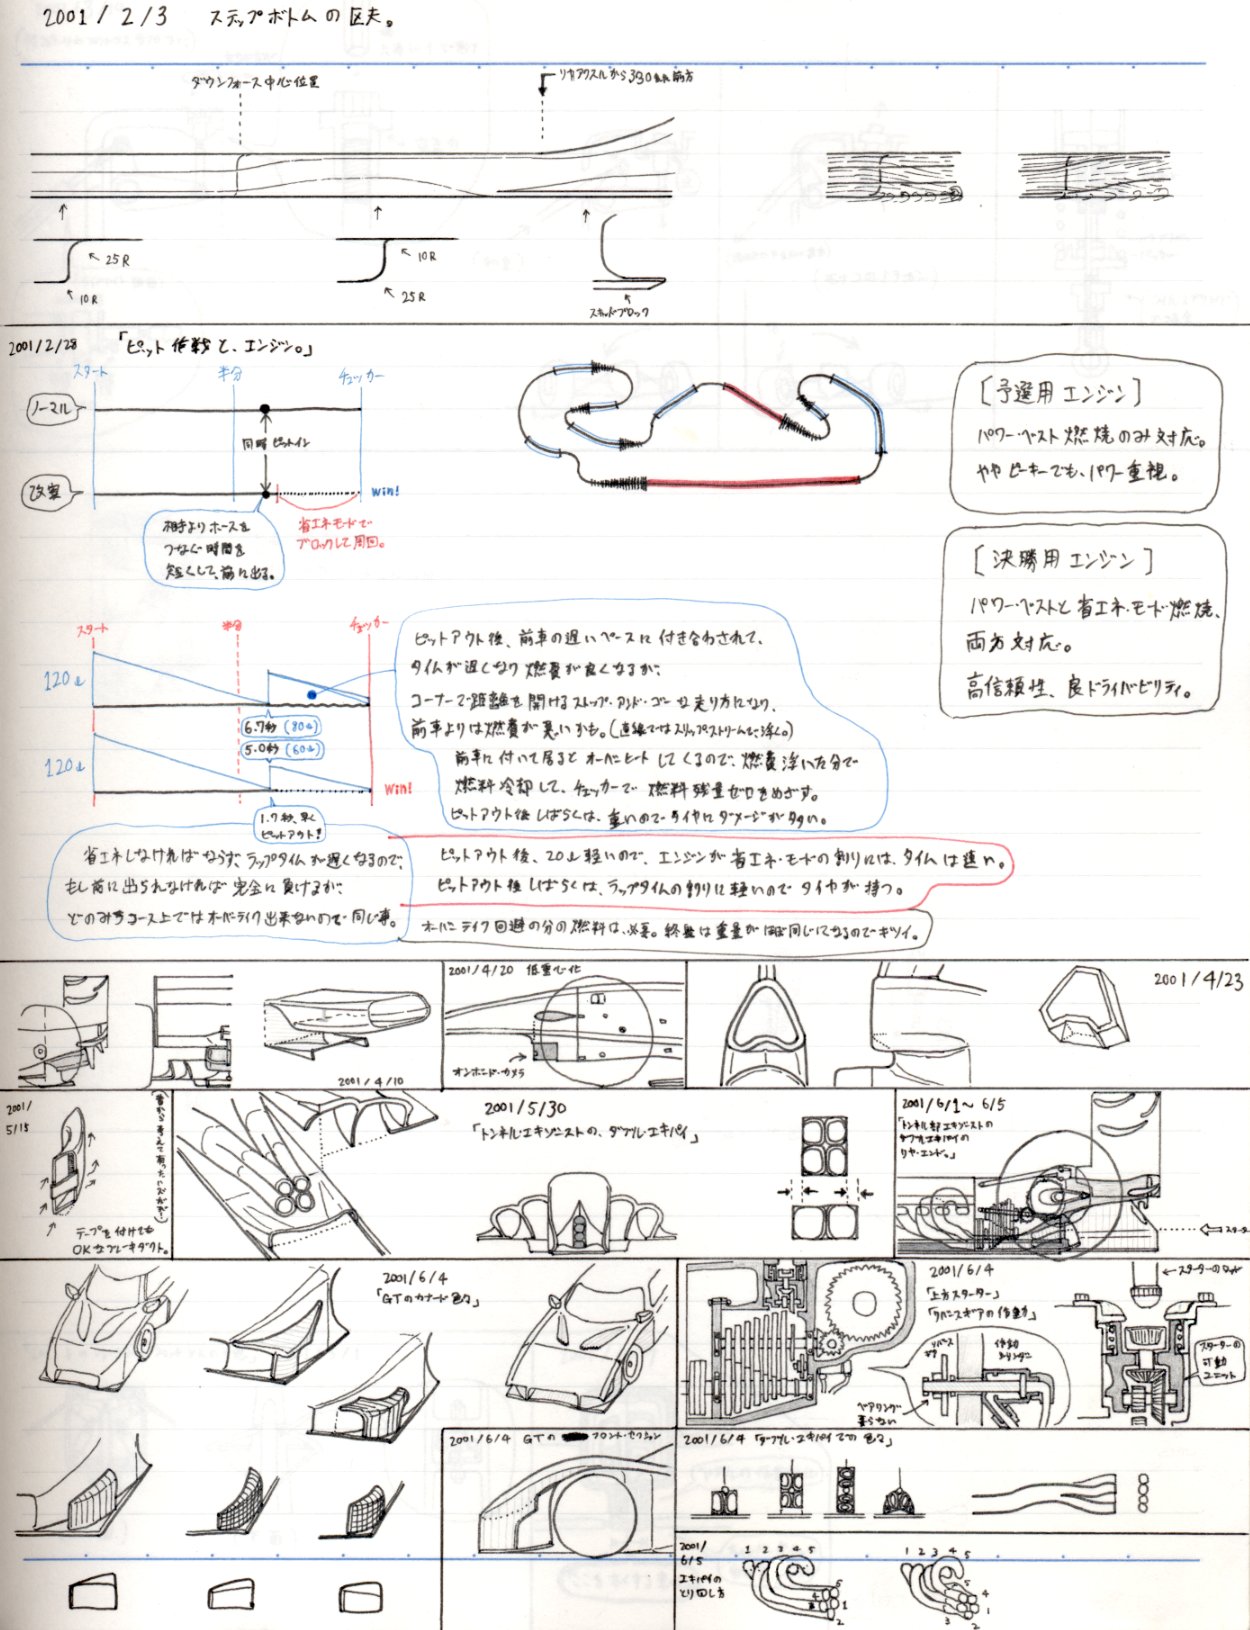 2001/2/3 ステップボトムの工夫。
ダウンフォース中心位置
リヤアクスルから330mm前方
25R
10R
10R
25R
スキッドブロック
2001/2/28 「ピット作戦と、エンジン。」
スタート 半分 チェッカー
ノーマル
同時ピットイン
改案
Win!
相手よりホースを
つなぐ時間を
短くして、前に出る。
省エネモードで
ブロックして周回。
[予選用エンジン]
パワー・ベスト燃焼のみ対応。
ややピーキーでも、パワー重視。
[決勝用エンジン]
パワー・ベストと省エネ・モード燃焼、
両方対応。
高信頼性、良ドライバビリティ。
スタート 半分 チェッカー
120ℓ
6.7秒(80ℓ)
5.0秒(60ℓ)
120ℓ
Win!
1.7秒、早く
ピットアウト!
ピットアウト後、前車の遅いペースに付き合わされて、
タイムが遅くなり燃費が良くなるが、
コーナーで距離を開けるストップ・アンド・ゴーな走り方になり、
前車よりは燃費が悪いかも。(直線ではスリップストリームで浮く。)
前車に付いて居るとオーバーヒートしてくるので、燃費浮いた分で
燃料冷却して、チェッカーで燃料残量ゼロをめざす。
ピットアウト後しばらくは、重いのでタイヤにダメージが多い。
省エネしなければならず、ラップタイムが遅くなるので、
もし前に出られなければ完全に負けるが、
どのみちコース上ではオーバーテイク出来ないので同じ事。
ピットアウト後、20ℓ軽いので、エンジンが省エネ・モードの割りには、タイムは速い。
ピットアウト後しばらくは、ラップタイムの割りに軽いのでタイヤが持つ。
オーバーテイク回避の分の燃料は、必要。終盤は重量がほぼ同じになるのでキツイ。
2001/4/10
2001/4/20 低重心化
オンボード・カメラ
2001/4/23
2001/
5/15
(昔から考えて有ったハズだが…)
テープを付けても
OKなブレーキダクト。
2001/5/30
「トンネル・エキゾーストの、ダブル・エキパイ」
2001/6/1〜6/5
「トンネル部エキゾーストの
ダブルエキパイの
リヤ・エンド。」
スターター
2001/6/4
「GTのカナード色々」
2001/6/4
「上方スターター」
「リバースギアの作動方」
リバース
ギア
作動
シリンダー
ベアリング
要らない
スターターのロッド
スターターの
可動
ユニット
2001/6/4 GTの フロント・セクション
2001/6/4 「ダブル・エキパイでの色々」
2001/
6/5
エキパイの
とり回し方
1 2 3 4 5
5
4
1
2
1 2 3 4 5
4
1
3 2